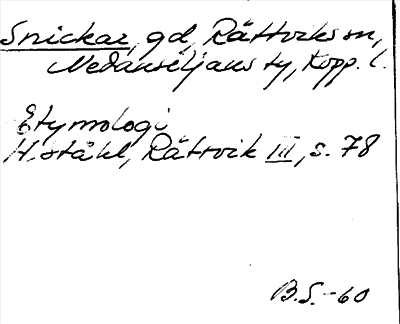 Snickar, gd, Rättviks sn,
Nedansiljans ty, Kopp. l.
Etymologi
H. Ståhl, Rättvik III, s. 78
B.S. -60